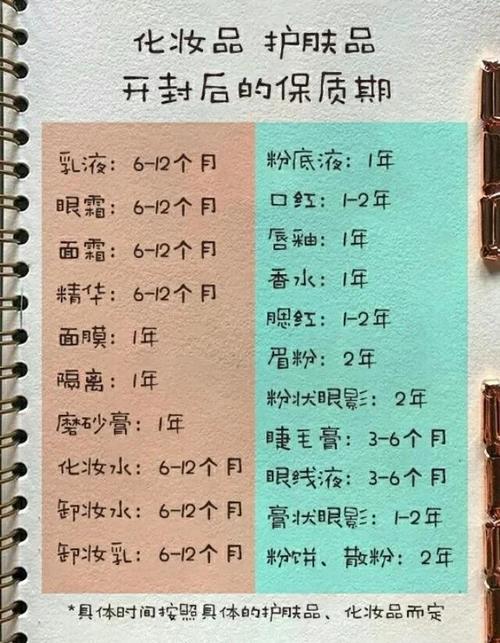 化妆品 护肤品
开封后的保质期
乳液：6-12个月
眼霜：6-12个月
面霜：6-12个月
精华：6-12个月
面膜：1年
隔离：1年
磨砂膏：1年
化妆水：6-12个月
卸妆水：6-12个月
卸妆乳：6-12个月
粉底液：1年
口红：1-2年
唇釉：1年
香水：1年
腮红：1-2年
眉粉：2年
粉状眼影：2年
睫毛膏：3-6个月
眼线液：3-6个月
膏状眼影：1-2年
粉饼、散粉：2年
*具体时间按照具体的护肤品、化妆品而定